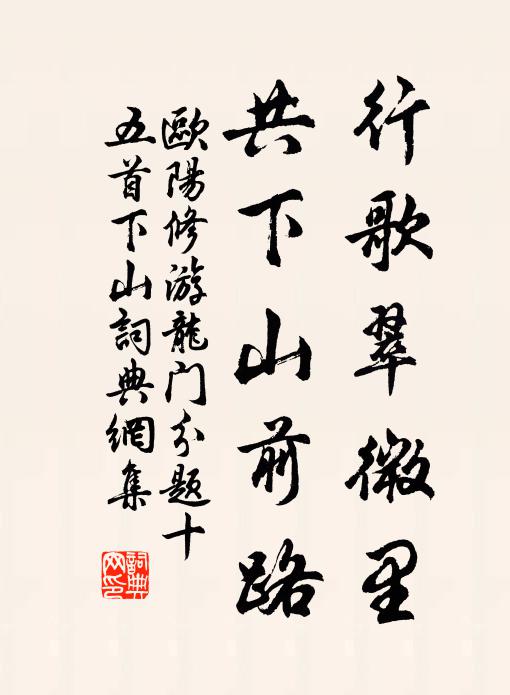 行歌翠微里
共下山前路
歐陽修游龍门分題十
五首下山詞典網集
詞典网印